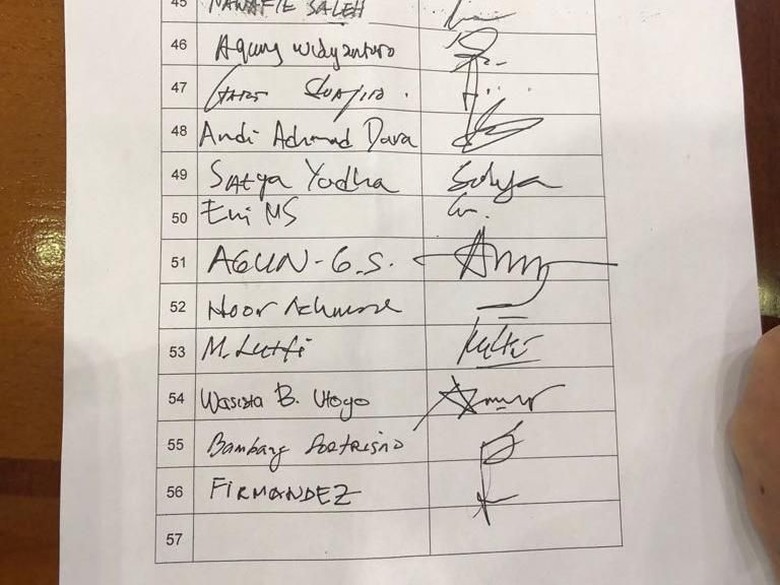 45 NAWAFIE SALEH
46 Agung Widyantoro
47
48 Andi Achmad Dara
49 Satya Yudha Satya
50 Eni MS
51 AGUN - G.S.
52 Noor Achmad
53 M. Lutfi
54 Wasista B. Utoyo
55 Bambang Soetrisno
56 FIRMANDEZ
57